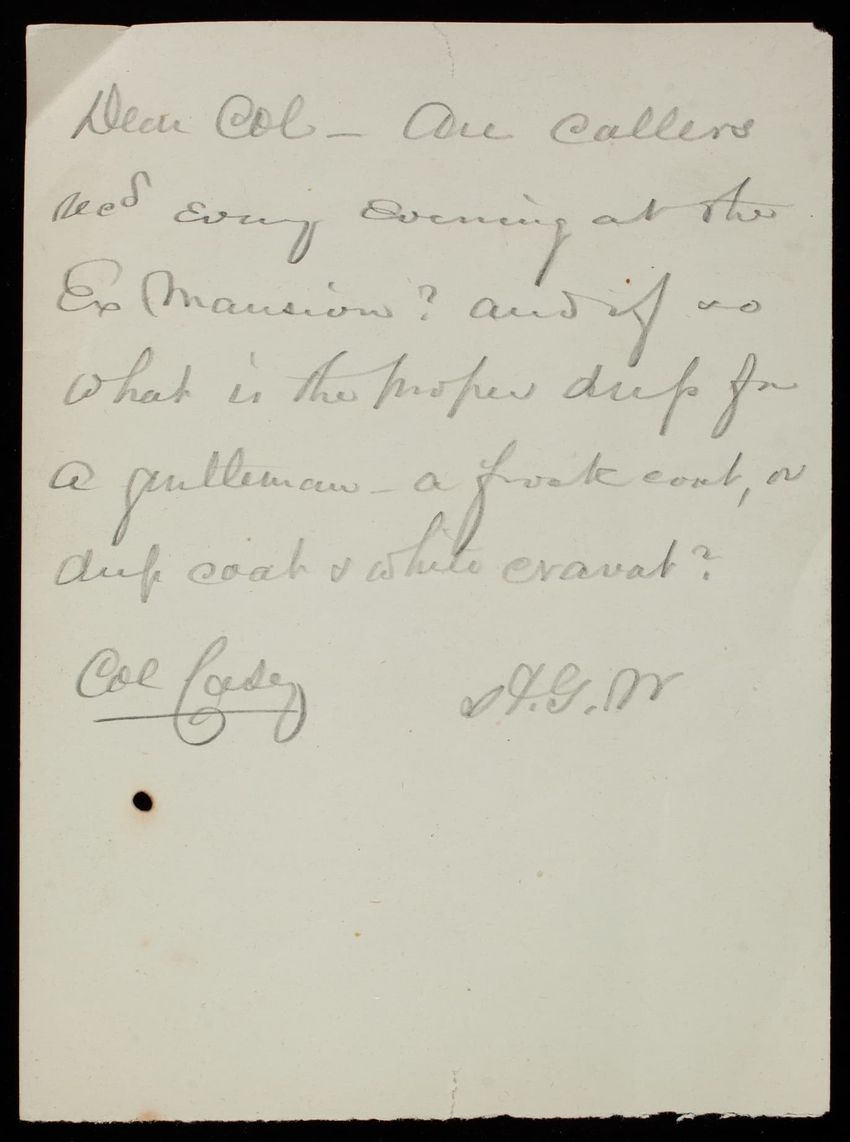 Dear Col – Are callers
recd every evening at the
Ex Mansion? and if so
what is the proper dress for
a gentleman – a frock coat, or
dress coat & white cravat?
Col Casey H.G.W